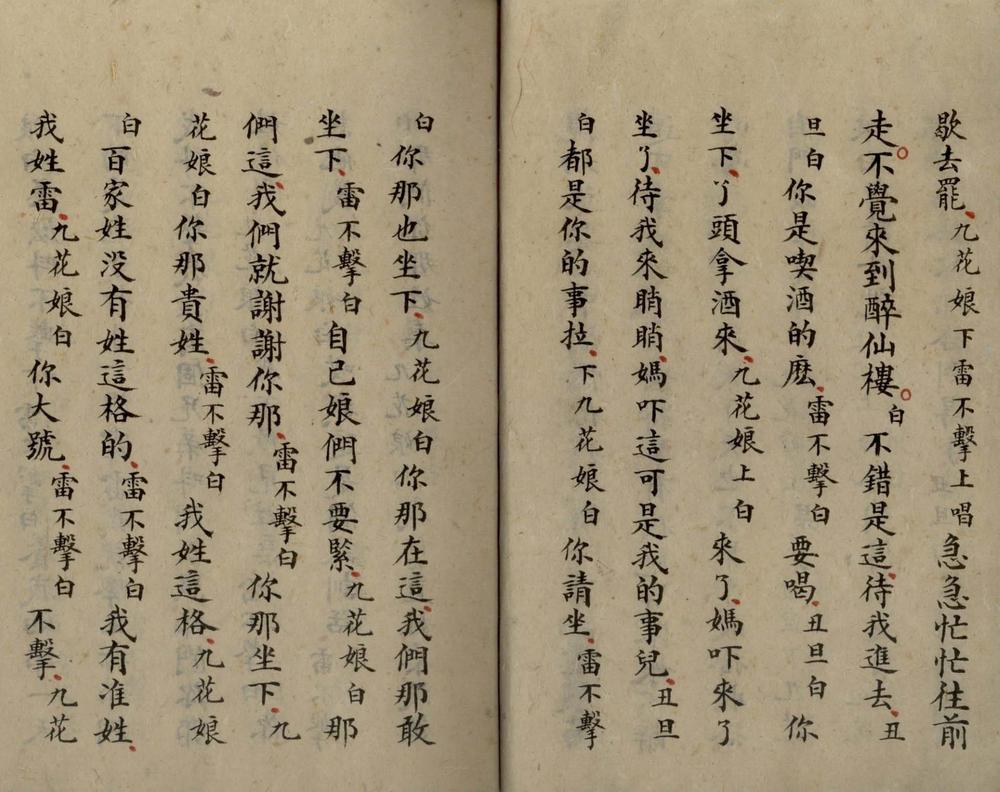 歇去罷、九花娘下雷不擊上唱急急忙忙往前
走。不覺來到醉仙樓。白不錯是這、待我進去、丑
旦白你是喫酒的麽、雷不擊白要喝、丑旦白你
坐下、丫頭拿酒來、九花娘上白來了、媽吓來了
坐了、待我來睄睄、媽吓這可是我的事兒、丑旦
白都是你的事拉、下九花娘白你請坐、雷不擊
白你那也坐下、九花娘白你那在這、我們那敢
坐下、雷不擊白自己娘們不要緊、九花娘白那
們這、我們就謝謝你那、雷不擊白你那坐下、九
花娘白你那貴姓、雷不擊白我姓這格、九花娘
白百家姓没有姓這格的、雷不擊白我有准姓、
我姓雷、九花娘白你大號、雷不擊白不擊、九花